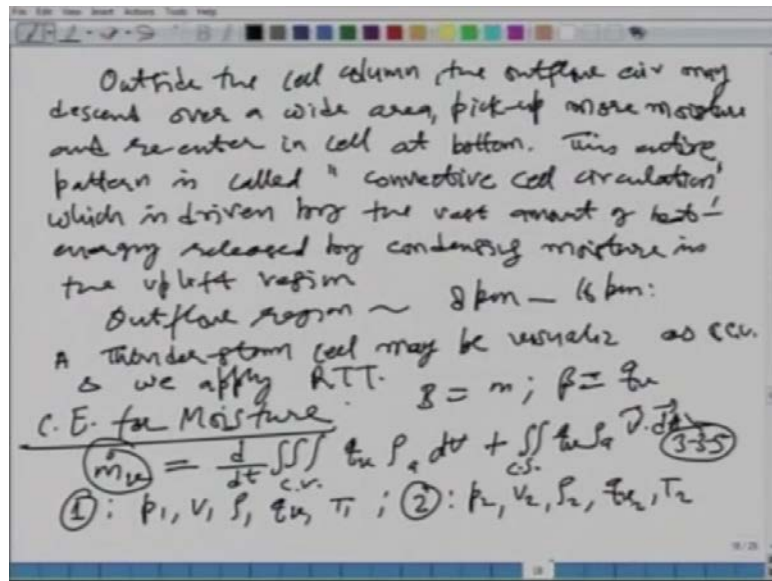 File Edit View Insert Actions Tools Help
Outside the cell column, the outflow air may
descend over a wide area, pick-up more moisture
and re-enter in cell at bottom. This entire
pattern is called "convective cell circulation"
which is driven by the vast amount of heat-
energy released by condensing moisture in
the uplift region
Outflow region ~ 8 km — 16 km:
A Thunder-storm cell may be visualiz as c.v.
& we apply RTT. B = m; β = qᵥ
C.E. for Moisture
ṁᵥ = d/dt ∭c.v. qᵥ ρₐ dV + ∬c.s. qᵥ ρₐ V⃗.dA⃗ 3-35
①: p₁, V₁, ρ₁ qᵥ, T₁ ; ②: p₂, V₂, ρ₂, qᵥ₂, T₂